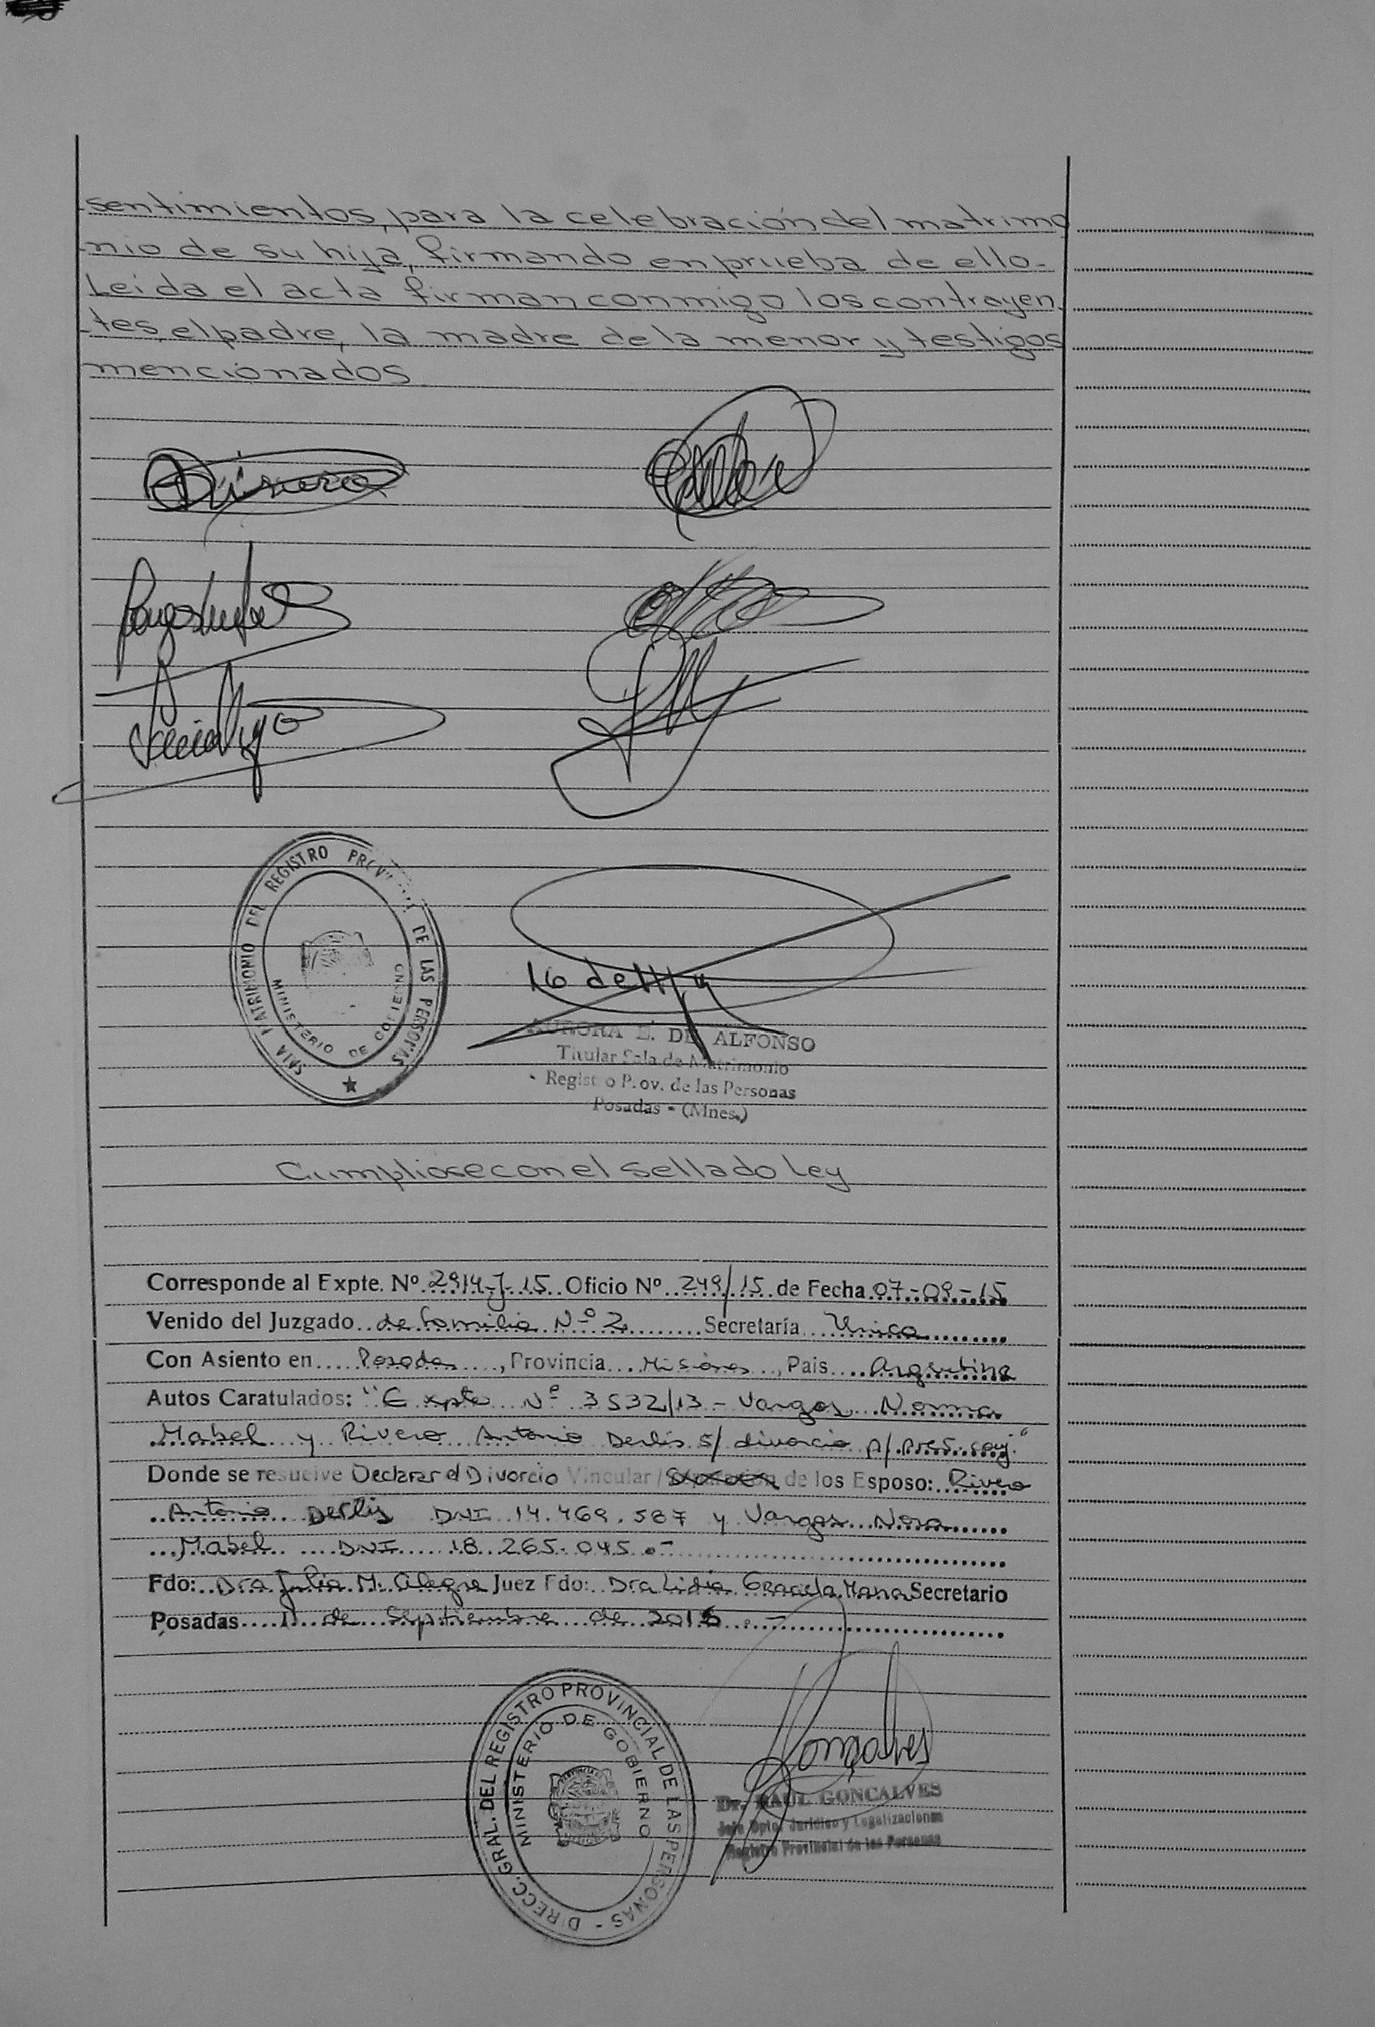 sentimientos, para la celebración del matrimo
nio de su hija, firmando en prueba de ello-
Leida el acta firman conmigo los contrayen
-tes, el padre, la madre de la menor y testigos
mencionados
SALA MATRIMONIO DEL REGISTRO DE LAS PERSONAS
MINISTERIO DE GOBIERNO
AURORA E. DE ALFONSO
Titular Sala de Matrimonio
Registro Prov. de las Personas
Posadas - (Mnes.)
Cumpliose con el sellado Ley
Corresponde al Expte. Nº 2914-J-15 Oficio Nº 249/15 de Fecha 07-09-15
Venido del Juzgado de Familia Nº 2 Secretaría Unica
Con Asiento en Posadas, Provincia Misiones, Pais Argentina
Autos Caratulados: "Expte Nº 3532/13 - Vargas Norma
Mabel y Rivero Antonio Derlis s/ divorcio p/ pres. conj."
Donde se resuelve Declarar el Divorcio Vincular / de los Esposo: Rivero
Antonio Derlis DNI 14.469.587 y Vargas Nora
Mabel DNI 18.265.045.-
Fdo: Dra Julia M. Alegre Juez Fdo: Dra Lidia Graciela Secretario
Posadas 11 de Septiembre de 2015.-
DIRECC. GRAL. DEL REGISTRO PROVINCIAL DE LAS PERSONAS
MINISTERIO DE GOBIERNO
Dr. RAUL GONCALVES
Jefe Dpto. Jurídico y Legalizaciones
Registro Provincial de las Personas